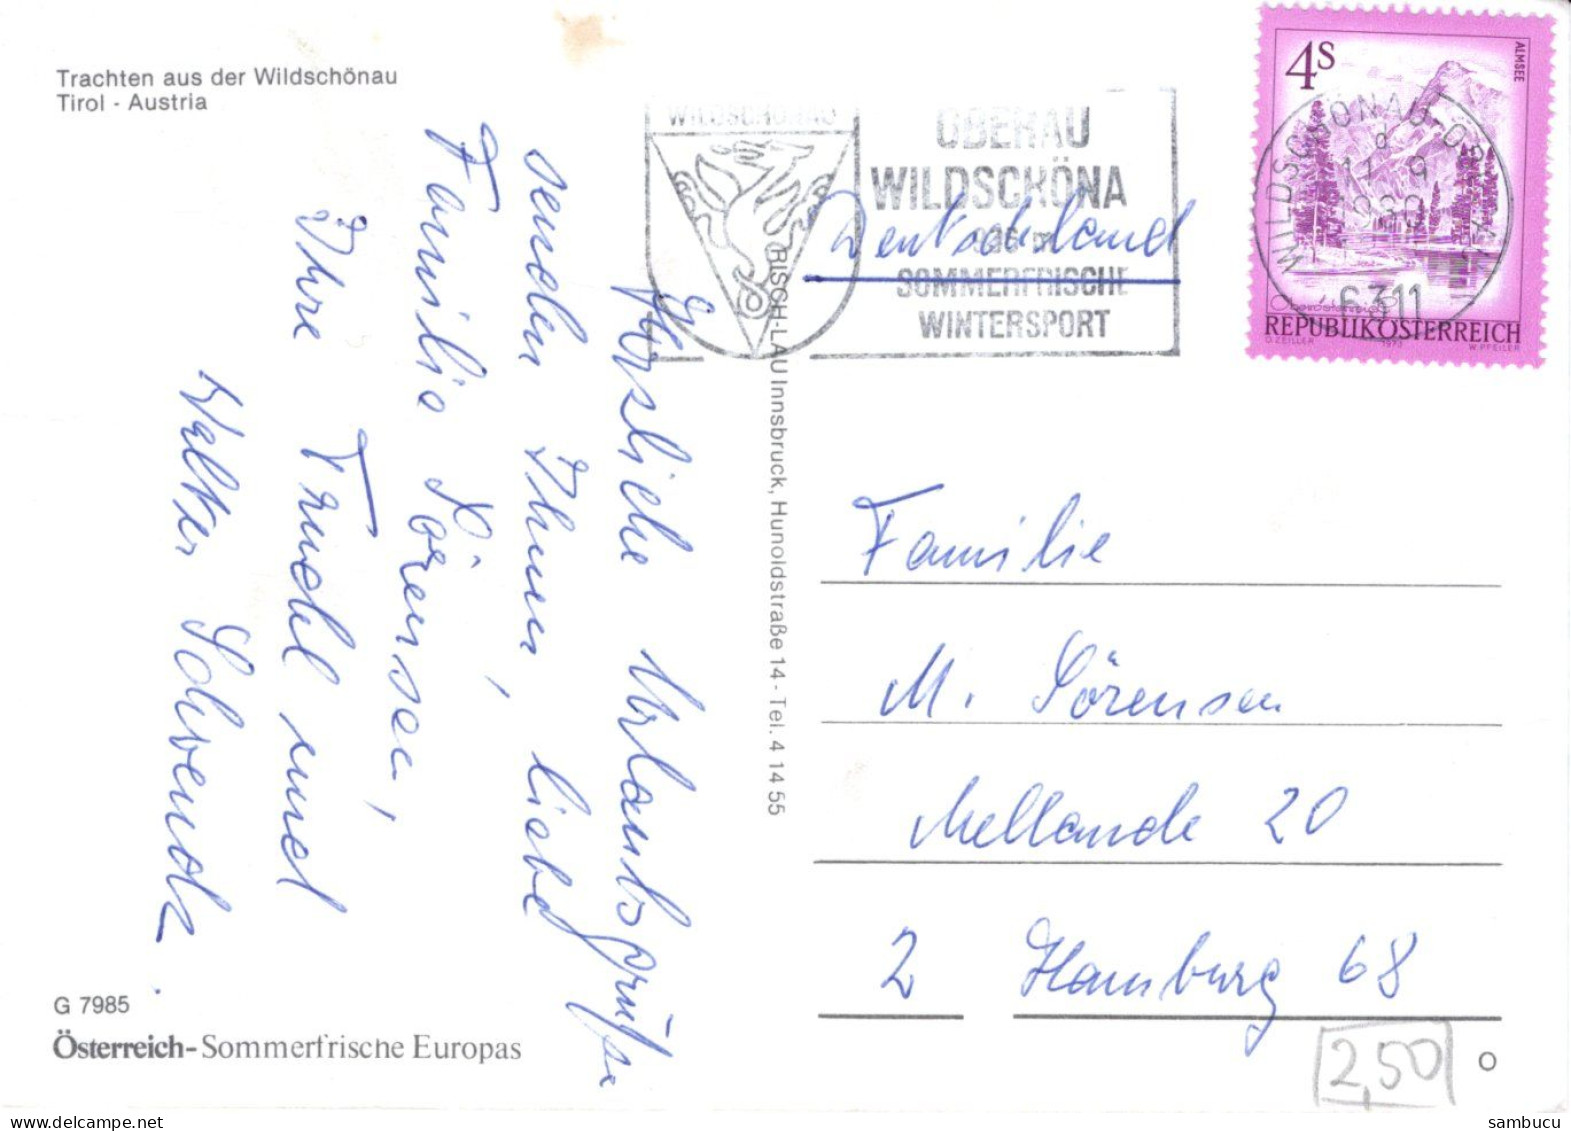 Trachten aus der Wildschönau
Tirol - Austria
Herzliche Urlaubsgrüße
senden Ihnen, liebe
Familie Sörensen,
Ihre Trudel und
Walter
G 7985
Österreich-Sommerfrische Europas
RISCH-LAU Innsbruck, Hunoldstraße 14 - Tel. 4 14 55
WILDSCHÖNAU
OBERAU
WILDSCHÖNA
SOMMERFRISCHE
WINTERSPORT
Deutschland
4S
ALMSEE
REPUBLIK ÖSTERREICH
G.ZEILER 1973 W.PFEILER
WILDSCHÖNAU-OBERAU
6311
Familie
M. Sörensen
Mellande 20
2 Hamburg 68
2,50
O
sambucu